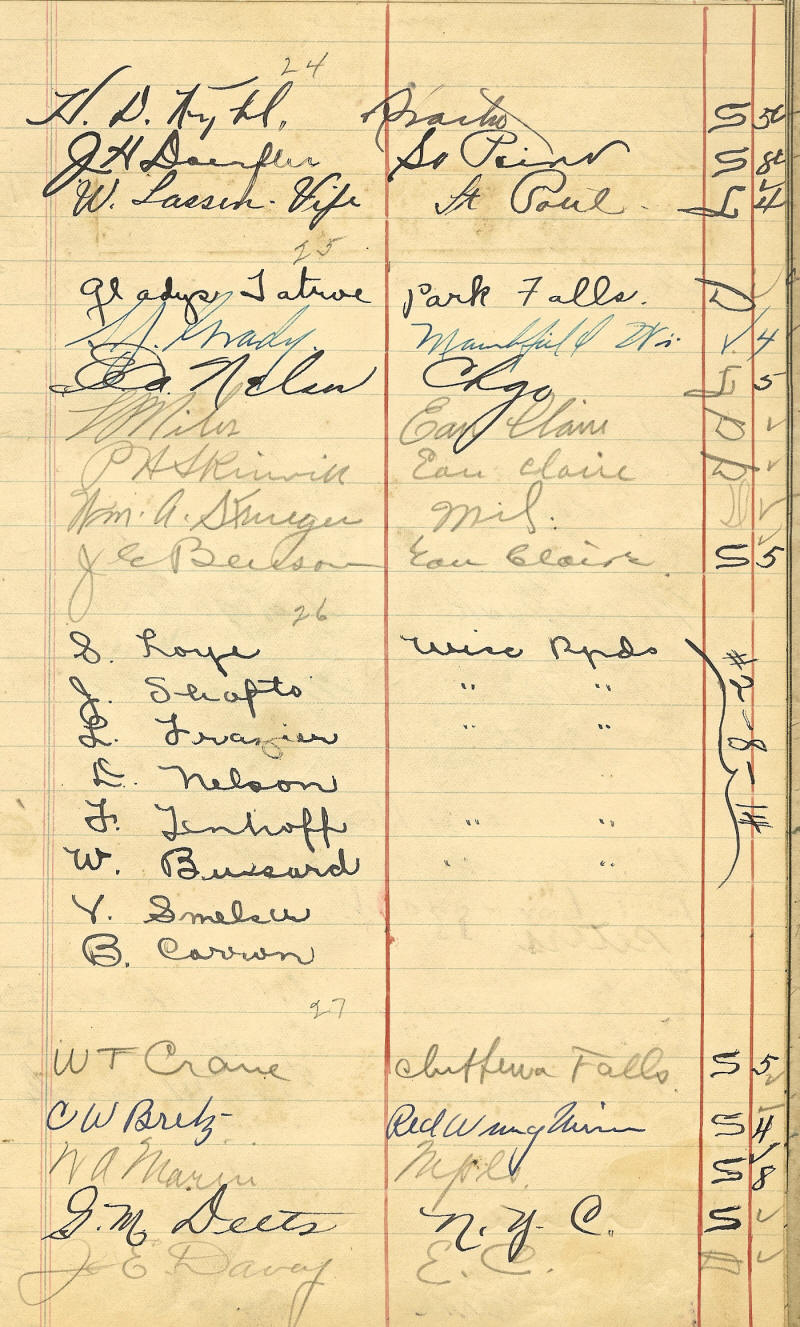 24
H. D. Kyhl, S 5
J H Doerfler So Point S 8
W. Lassen - Wife St Paul L 4
25
Gladys Latrve Park Falls. D
Grady. Marshfield Wis. 4
Ed. Nelson Chgo L 5
L Miles Eau Claire D
P H Skinvik Eau Claire D
Wm. A. Krueger Mil. D
J C Benson Eau Claire S 5
26
S. Loye Wisc Rpds #2-8-14
J. Shafto " "
L. Frazier " "
D. Nelson
F. Tenhoff " "
W. Bussard " "
V. Smelser
B. Carron
27
W T Crane Chippewa Falls S 5
C W Bretz Red Wing Minn S 4
W A Marin Mpls. S 8
G. M. Deets N. Y. C. S
J E Davey E. C. D